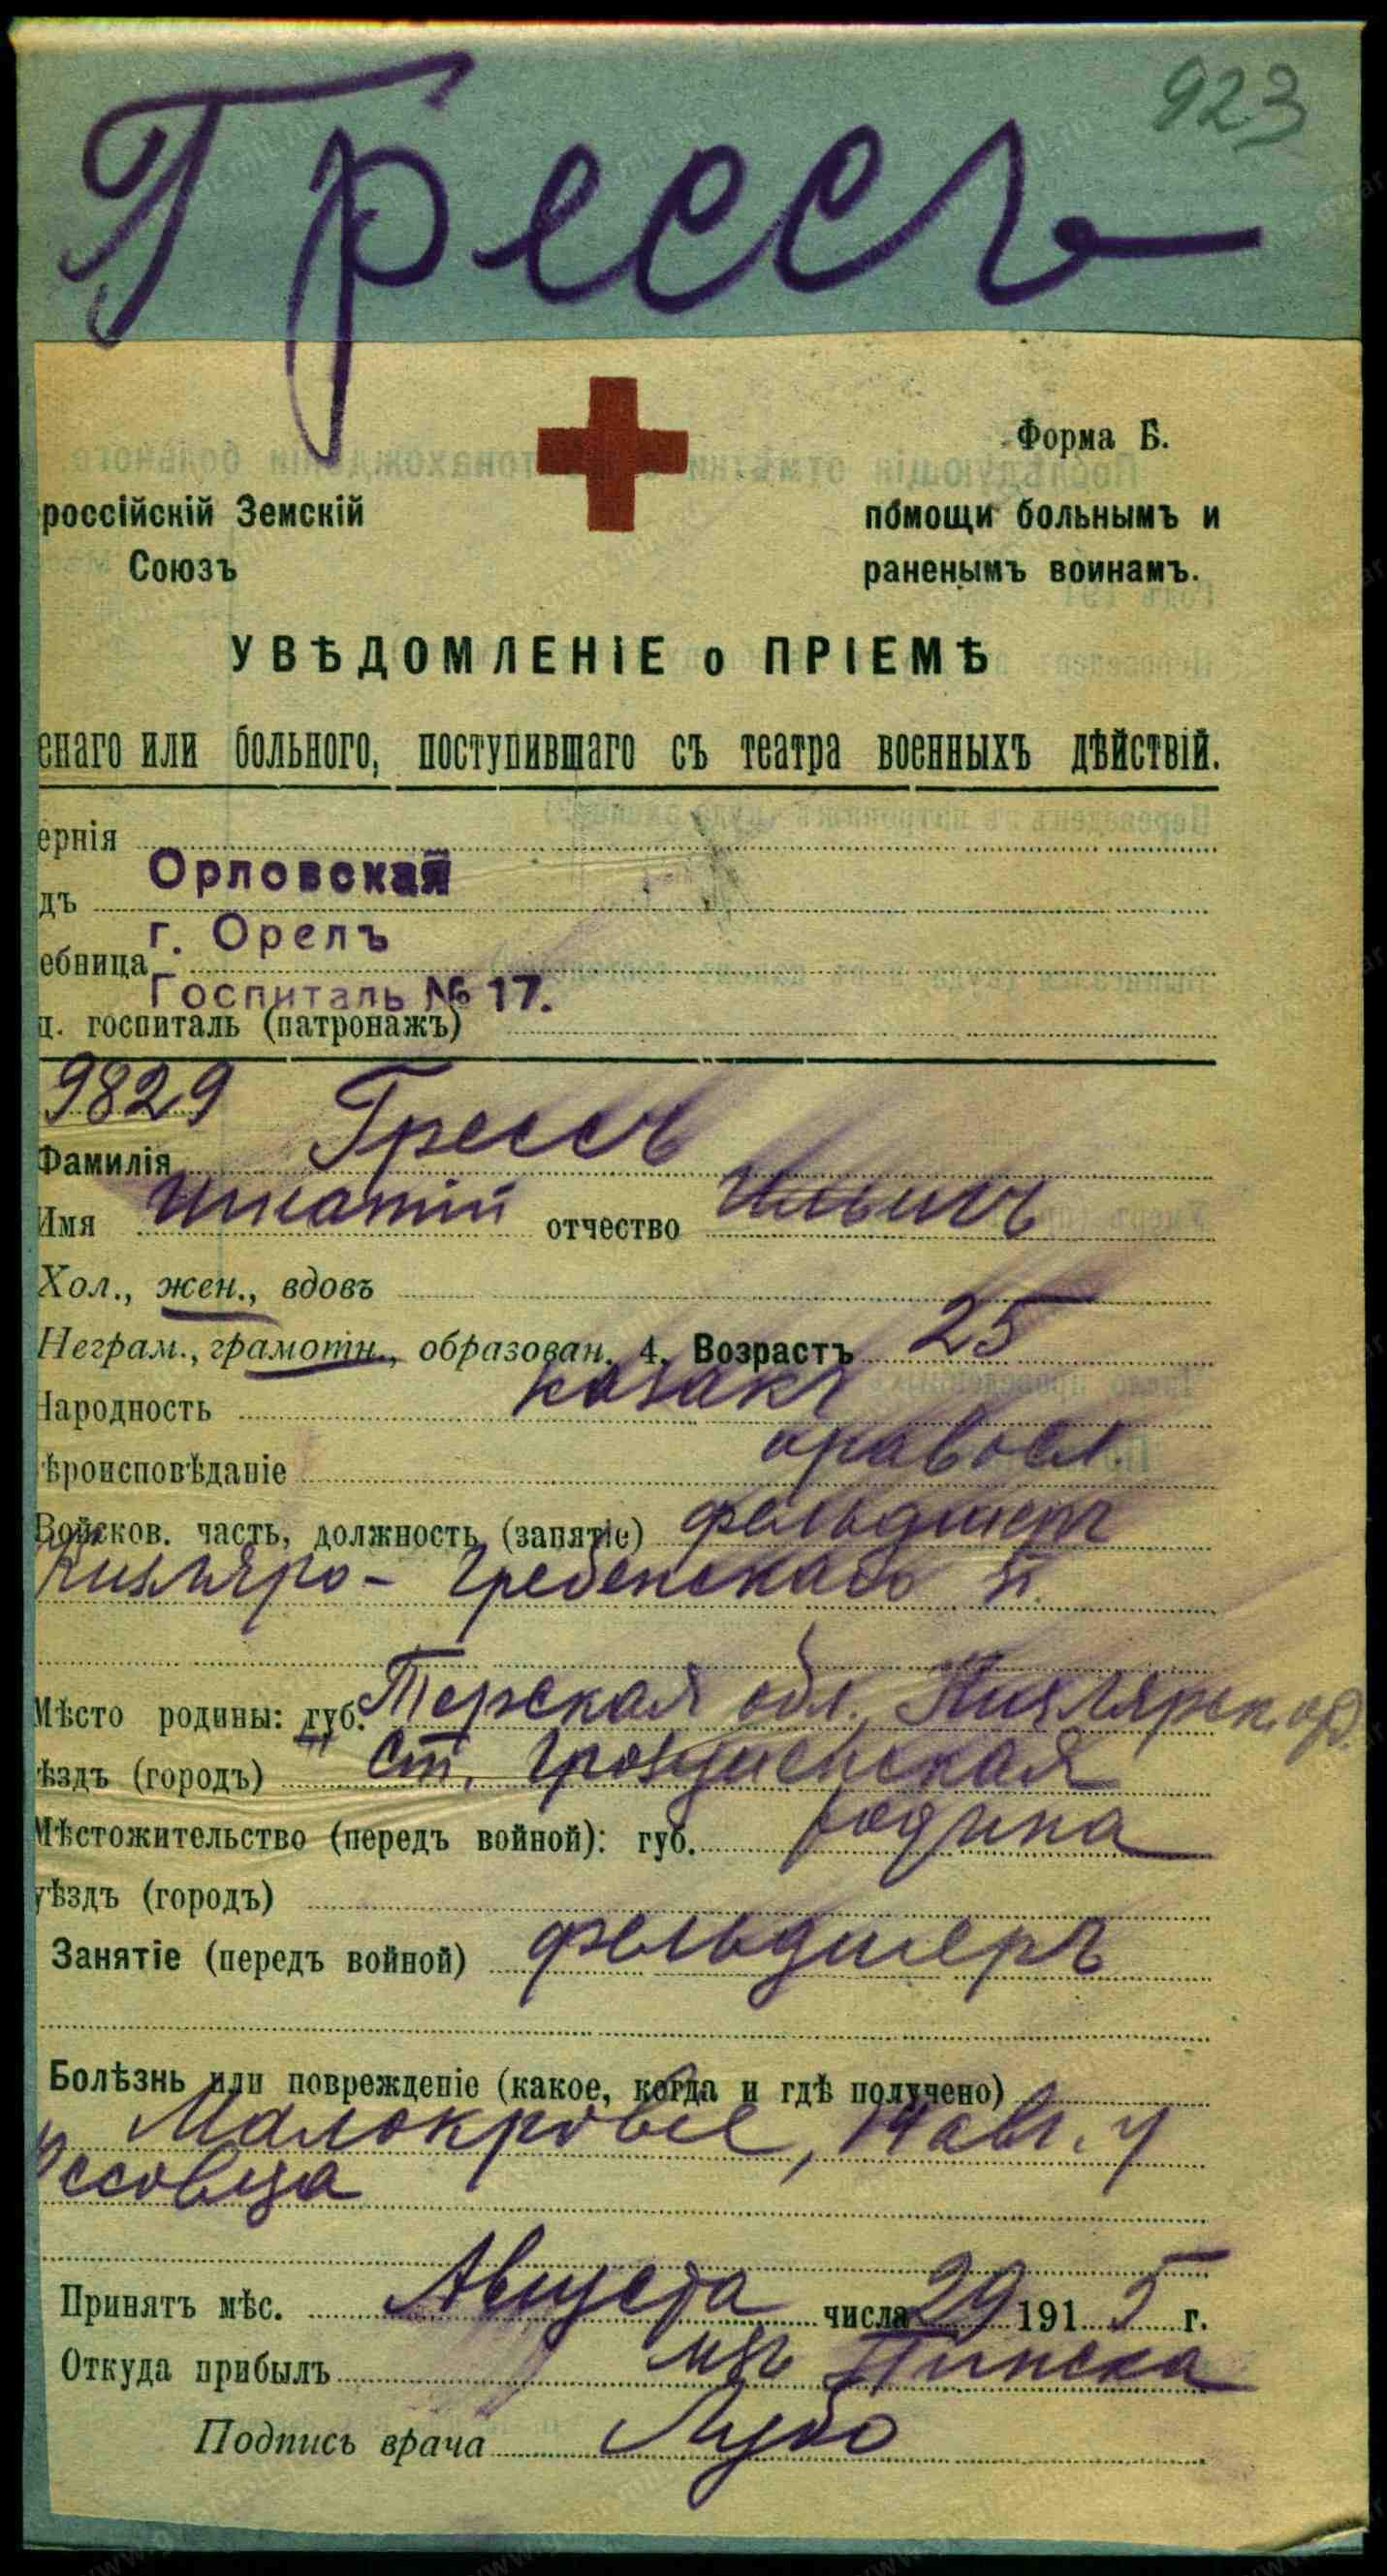 923
Грессъ
Форма Б.
россійскій Земскій
помощи больнымъ и
Союзъ
раненымъ воинамъ.
УВѢДОМЛЕНІЕ о ПРІЕМѢ
енаго или больного, поступившаго съ театра военныхъ дѣйствій.
ернія
Орловская
дъ
г. Орелъ
ебница
Госпиталь № 17.
ц. госпиталь (патронажъ)
9829
Фамилія Грессъ
Имя Игнатій отчество Ильичъ
Хол., жен., вдовъ
Неграм., грамотн., образован. 4. Возрастъ 25
Народность казакъ
ѣроисповѣданіе правосл.
Войсков. часть, должность (занятіе) фельдшеръ
Кизляро-Гребенскаго п.
Мѣсто родины: губ. Терская обл., Кизлярск.
ѣздъ (городъ) ст.
Мѣстожительство (передъ войной): губ. родина
уѣздъ (городъ)
Занятіе (передъ войной) фельдшеръ
Болѣзнь или поврежденіе (какое, когда и гдѣ получено)
Малокровіе, 14 авг. у
ссовца
Принятъ мѣс. Августа числа 29 1915 г.
Откуда прибылъ изъ Пинска
Подпись врача